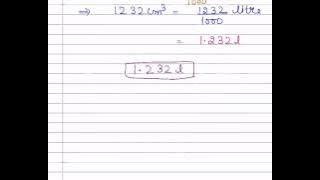 1000
⇒ 1232 cm³ = 1232/1000 litre
= 1.232 l
1.232 l